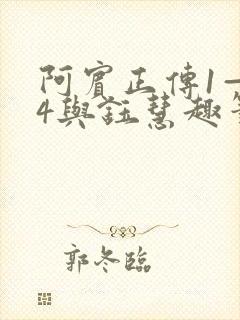 阿賓正傳1—
4與鈺慧趣
郭冬臨